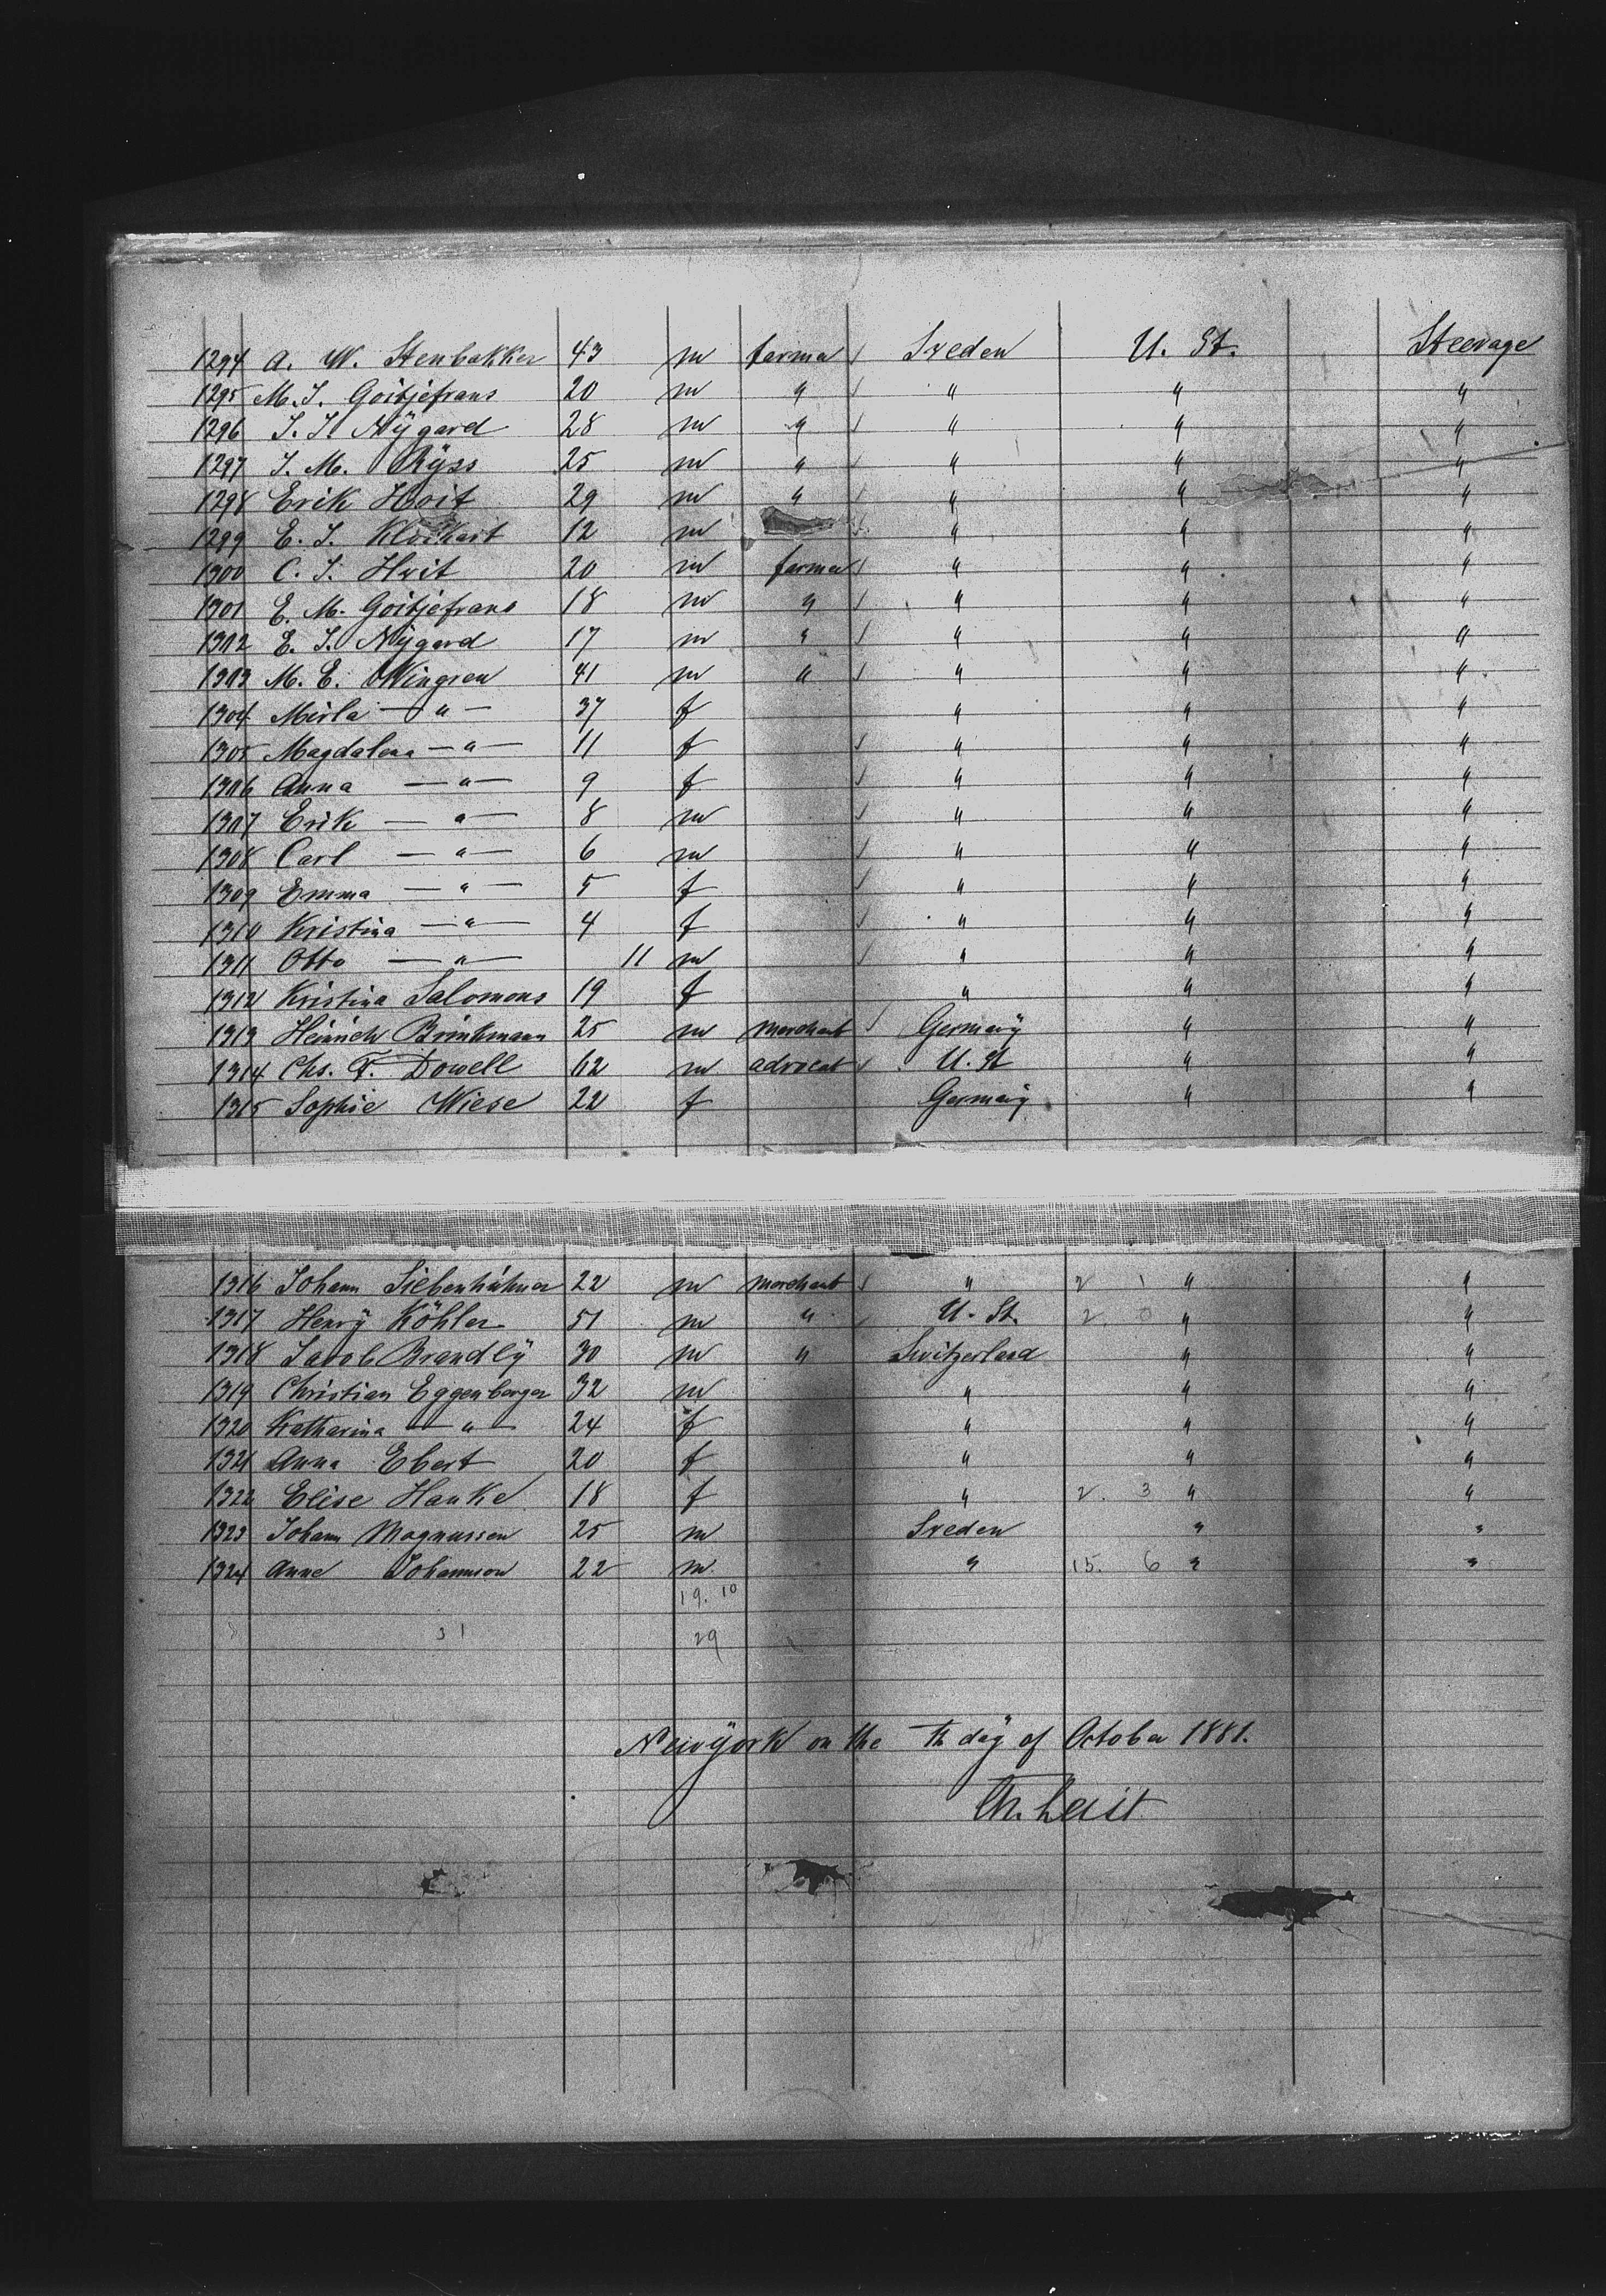 1294 A. W. Stenbakker 43 m farmer Sveden U. St. Steerage
1295 M. I. Goitjefrans 20 m " " " "
1296 I. I. Nÿgard 28 m " " " "
1297 I. M. Rÿss 25 m " " " "
1298 Erik Hoit 29 m " " " "
1299 E. I. Klockart 12 m " " "
1300 C. I. Hvit 20 m farmer " " "
1301 E. M. Goitjefrans 18 m " " " "
1302 E. I. Nÿgard 17 m " " " "
1303 M. E. Wingren 41 m " " " "
1304 Mirla — " — 37 f " " "
1305 Magdalena — " — 11 f " " "
1306 Anna — " — 9 f " " "
1307 Erik — " — 8 m " " "
1308 Carl — " — 6 m " " "
1309 Emma — " — 5 f " " "
1310 Kristina — " — 4 f " " "
1311 Otto — " — 11 m " " "
1312 Kristina Salomons 19 f " " "
1313 Heinrich Brinkmann 25 m merchant Germanÿ " "
1314 Chs. F. Dowell 62 m advocat U. St " "
1315 Sophie Wiese 22 f Germanÿ " "
1316 Johann Siebenhühner 22 m merchant " 2 1 " "
1317 Henrÿ Köhler 51 m " U. St. 2 0 " "
1318 Jacob Brandlÿ 30 m " Switzerland " "
1319 Christian Eggenberger 32 m " " "
1320 Katharina — " — 24 f " " "
1321 Anna Ebert 20 f " " "
1322 Elise Hanke 18 f " 2. 3 " "
1323 Johann Magnussen 25 m Sveden " "
1324 Anne Johannson 22 m " 15. 6 " "
19. 10
31 29
Newÿork on the th daÿ of October 1881.
Th. Leist